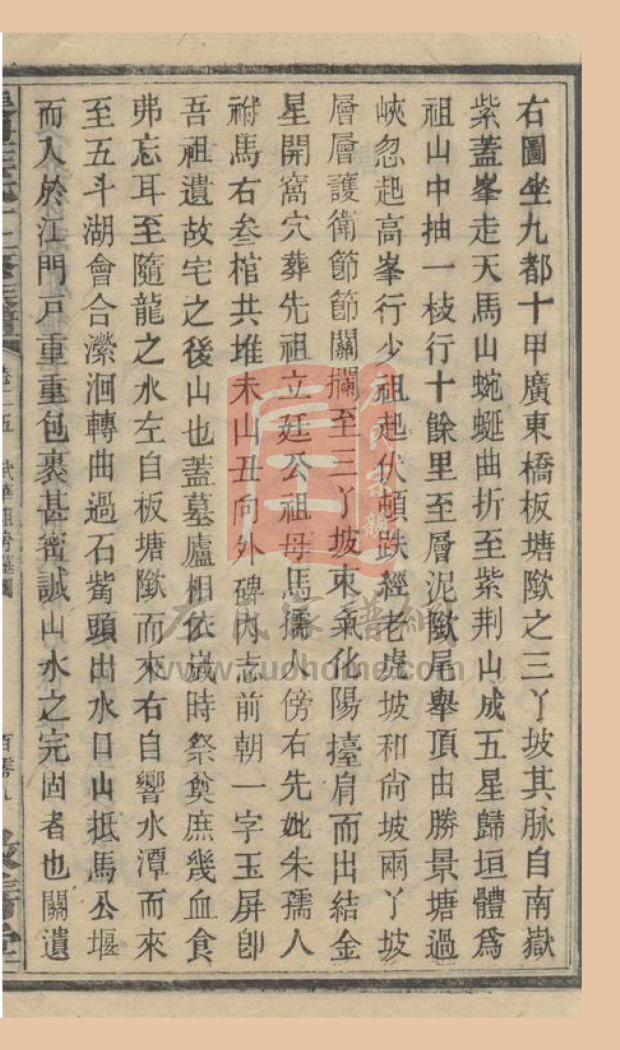 右圖坐九都十甲廣東橋板塘歟之三丫坡其脉自南嶽
紫蓋峯走天馬山蜿蜒曲折至紫荆山成五星歸垣體爲
祖山中抽一枝行十餘里至層泥歟尾舉頂由勝景塘過
峽忽起高峯行少祖起伏頓跌經老虎坡和尙坡兩丫坡
層層護衛節節關攔至三丫坡束氣化陽擡肩而出結金
星開窩穴葬先祖立廷公祖母馬孺人傍右先妣朱孺人
祔馬右叁棺共堆未山丑向外碑內志前朝一字玉屏卽
吾祖遺故宅之後山也蓋墓廬相依歲時祭奠庶幾血食
弗忘耳至隨龍之水左自板塘歟而來右自響水潭而來
至五斗湖會合瀠洄轉曲過石觜頭出水口山抵馬公堰
而入於江門戸重重包裹甚密誠山水之完固者也關遺
卷二五
左氏家譜網
www.zuohome.com